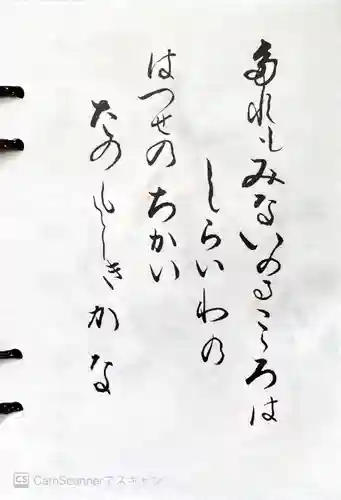 たれもみないのるこころは
しらいわの
はつせのちかい
たのもしきかな
CS CamScannerでスキャン